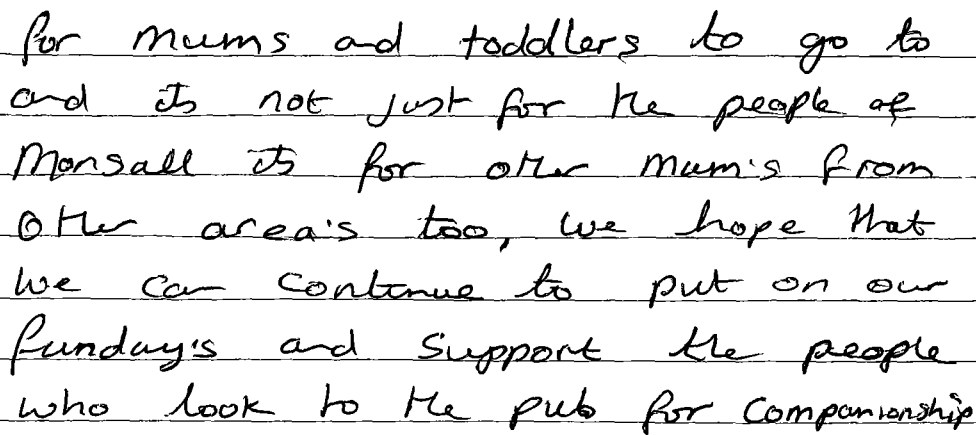 for mums and toddlers to go to
and its not just for the people of
Monsall its for other mum's from
other area's too, we hope that
we can continue to put on our
funday's and support the people
who look to the pub for companionship